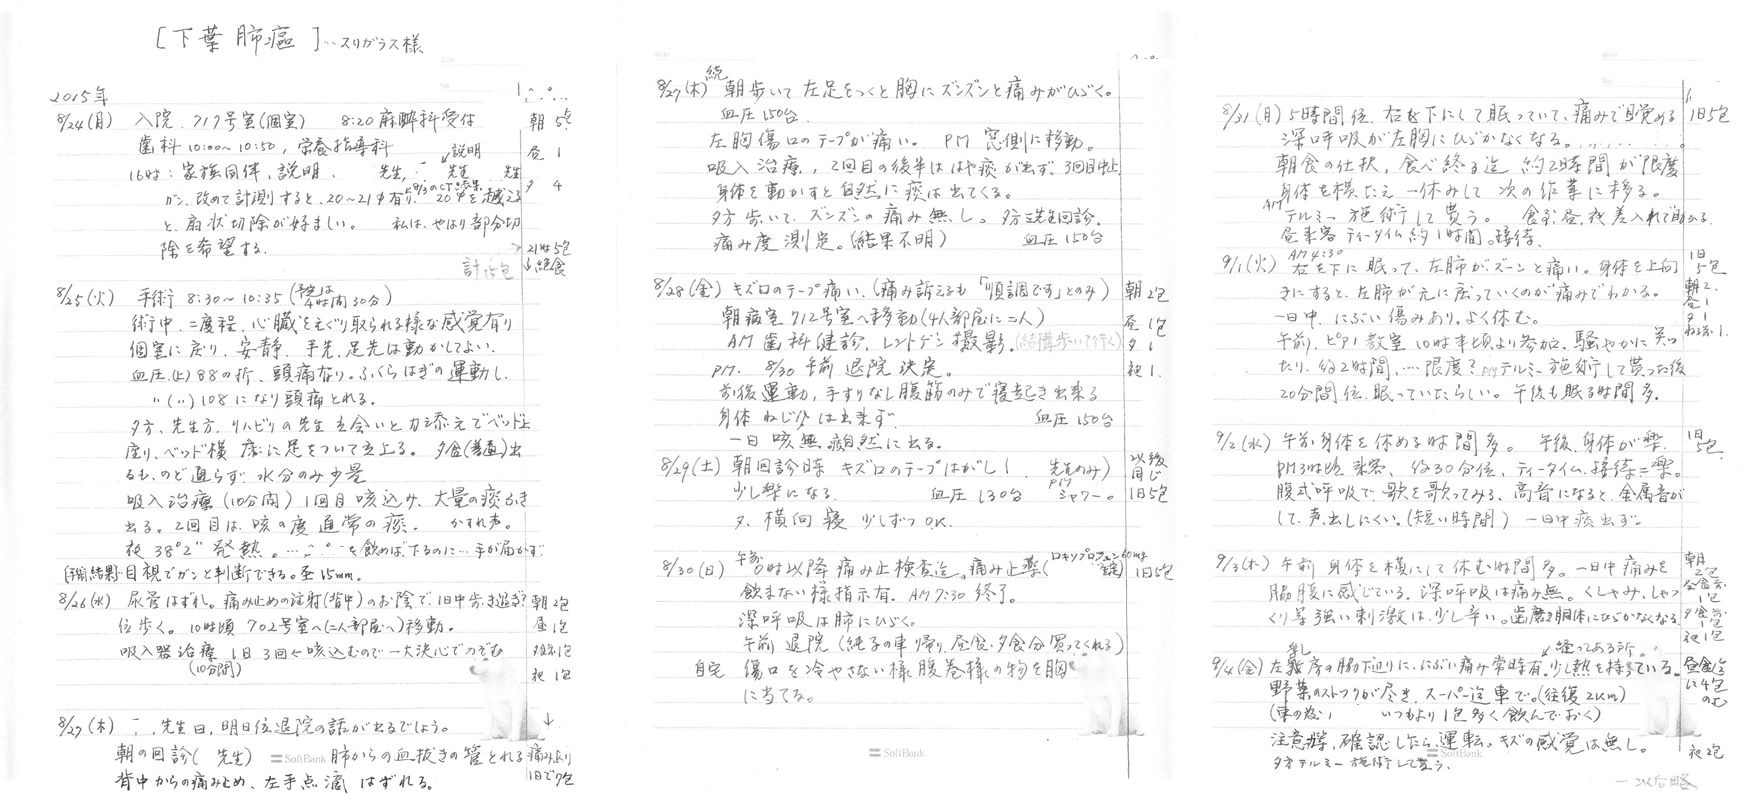 [下葉 肺癌]…スリガラス様
2015年
8/24(月) 入院、717号室(個室) 8:20 麻酔科受付 朝 5
歯科 10:00〜10:50, 栄養指導科 昼 1
説明
16時: 家族同伴、説明、 先生, 先生 先生 夕 4
ガン、改めて計測すると、20〜21φ有り、 20φを越える
8/3のCT結果
と、扇状切除が好ましい。 私は、やはり部分切
除を希望する。 21時5包
計15包 ↓絶食
8/25(火) 手術 8:30〜10:35 (予定は 4時間30分)
術中、二度程、心臓をえぐり取られる様な感覚有り
個室に戻り、安静、手先、足先は動かしてよい、
血圧(上)88の折、頭痛有り。ふくらはぎの運動し、
〃(〃)108になり頭痛とれる。
夕方、先生方、リハビリの先生 立会いと力添えでベッド上
座り、ベッド横 床に足をついて立上る。 夕食(普通)出
るも、のど通らず 水分のみ少量
吸入治療(10分間) 1回目 咳込み、大量の痰ふき
出る。2回目は、咳の度 通常の痰。 かすれ声。
夜 38°2" 発熱。… を飲めば下るのに…手が届かず
(手術結果)・目視でガンと判断できる。至15mm。
8/26(水) 尿管はずれ。痛み止めの注射(背中)のお陰で、1日中歩き過ぎ? 朝 2包
位歩く。10時頃 702号室へ(二人部屋へ)移動。 昼 1包
吸入器治療 1日 3回←咳込むので一大決心でのぞむ 夕食前 1包
(10分間) 夜 1包
8/27(木) 先生曰、明日位退院の話が出るでしょう。 ↓
朝の回診( 先生) 肺からの血抜きの管とれる 痛みあり
SoftBank
背中からの痛み止め、左手点滴 はずれる。 1日で7包
続
8/27(木) 朝歩いて左足をつくと胸にズンズンと痛みがひびく。
血圧150台
左胸傷口のテープが痛い。 PM 窓側に移動。
吸入治療、2回目の後半ははや痰が出ず。3回目中止
身体を動かすと自然に痰は出てくる。
夕方歩いて、ズンズンの痛み無し。夕方 先生回診、
痛み度測定。(結果不明) 血圧150台
8/28(金) キズ口のテープ痛い、(痛み訴えるも「順調です」とのみ) 朝 2包
朝病室 712号室へ移動(4人部屋に二人) 昼 1包
AM 歯科健診、レントゲン撮影、(結構歩いて行く) 夕 1
PM. 8/30 午前 退院 決定。 夜 1.
前後運動、手すりなし腹筋のみで寝起き出来る
身体 ねじりは出来ず 血圧150台
一日 咳無。痰自然に出る。
8/29(土) 朝回診時 キズ口のテープはがし( 先生のみ) 以後同じ
少し楽になる。 血圧130台 PM シャワー。 1日5包
夕、横向寝 少しずつO.K.
8/30(日) 午前0時以降痛み止検査迄、痛み止薬(ロキソプロフェン60mg 錠) 1日5包
飲まない様指示有。AM7:30 終了。
深呼吸は肺にひびく。
午前 退院 (純子の車帰り、昼食・夕食分買ってくれる)
自宅 傷口を冷やさない様 腹巻様の物を胸
に当てる。
SoftBank
8/31(月) 5時間位、右を下にして眠っていて、痛みで目覚める 1日5包
深呼吸が左胸にひびかなくなる。
朝食の仕択、食べ終る迄 約2時間が限度
身体を横たえ 一休みして 次の作業に移る。
AM テルミー施術して貰う。 食事、昼、夜差入れて助かる。
昼来客 ティータイム約1時間。接待、
9/1(火) AM4:30 右を下に眠って、左肺がズーンと痛い。身体を上向 1日5包
きにすると、左肺が元に戻っていくのが痛みでわかる。 朝2、
一日中、にぶい傷みあり。よく休む。 昼1 夕1
午前、ピアノ教室 10時半頃より参加、騒やかに笑っ ねる前1.
たり、約2時間,…限度? PMテルミー施術して貰った後
20分間位、眠っていたらしい。午後も眠る時間多。
9/2(水) 午前、身体を休める時間多。 午後、身体が楽、 1日5包
PM3時頃 来客、約30分位、ティータイム、接待=楽。
腹式呼吸で、歌を歌ってみる、高音になると、金属音が
して、声、出しにくい。(短い時間) 一日中痰出ず。
9/3(木) 午前 身体を横にして休む時間多。一日中痛みを 朝 2包
脇腹に感じている、深呼吸は痛み無。くしゃみ、しゃっ 昼食前 1包
くり等強い刺激は、少し辛い。歯磨き胴体にひびかなくなる 夕食前 1包
夜1包
9/4(金) 左乳房の脇下辺りに、にぶい痛み常時有。少し熱を持っている。 昼食迄に4包のむ
乳
↙縫ってある所。
野菜のストックが尽き、スーパー迄車で。(往復2km)
(車の為い いつもより1包多く飲んでおく)
注意標、確認したら、運転。キズの感覚は無し。 夜2包
SoftBank
夕方テルミー施術して貰う。
― 以後略